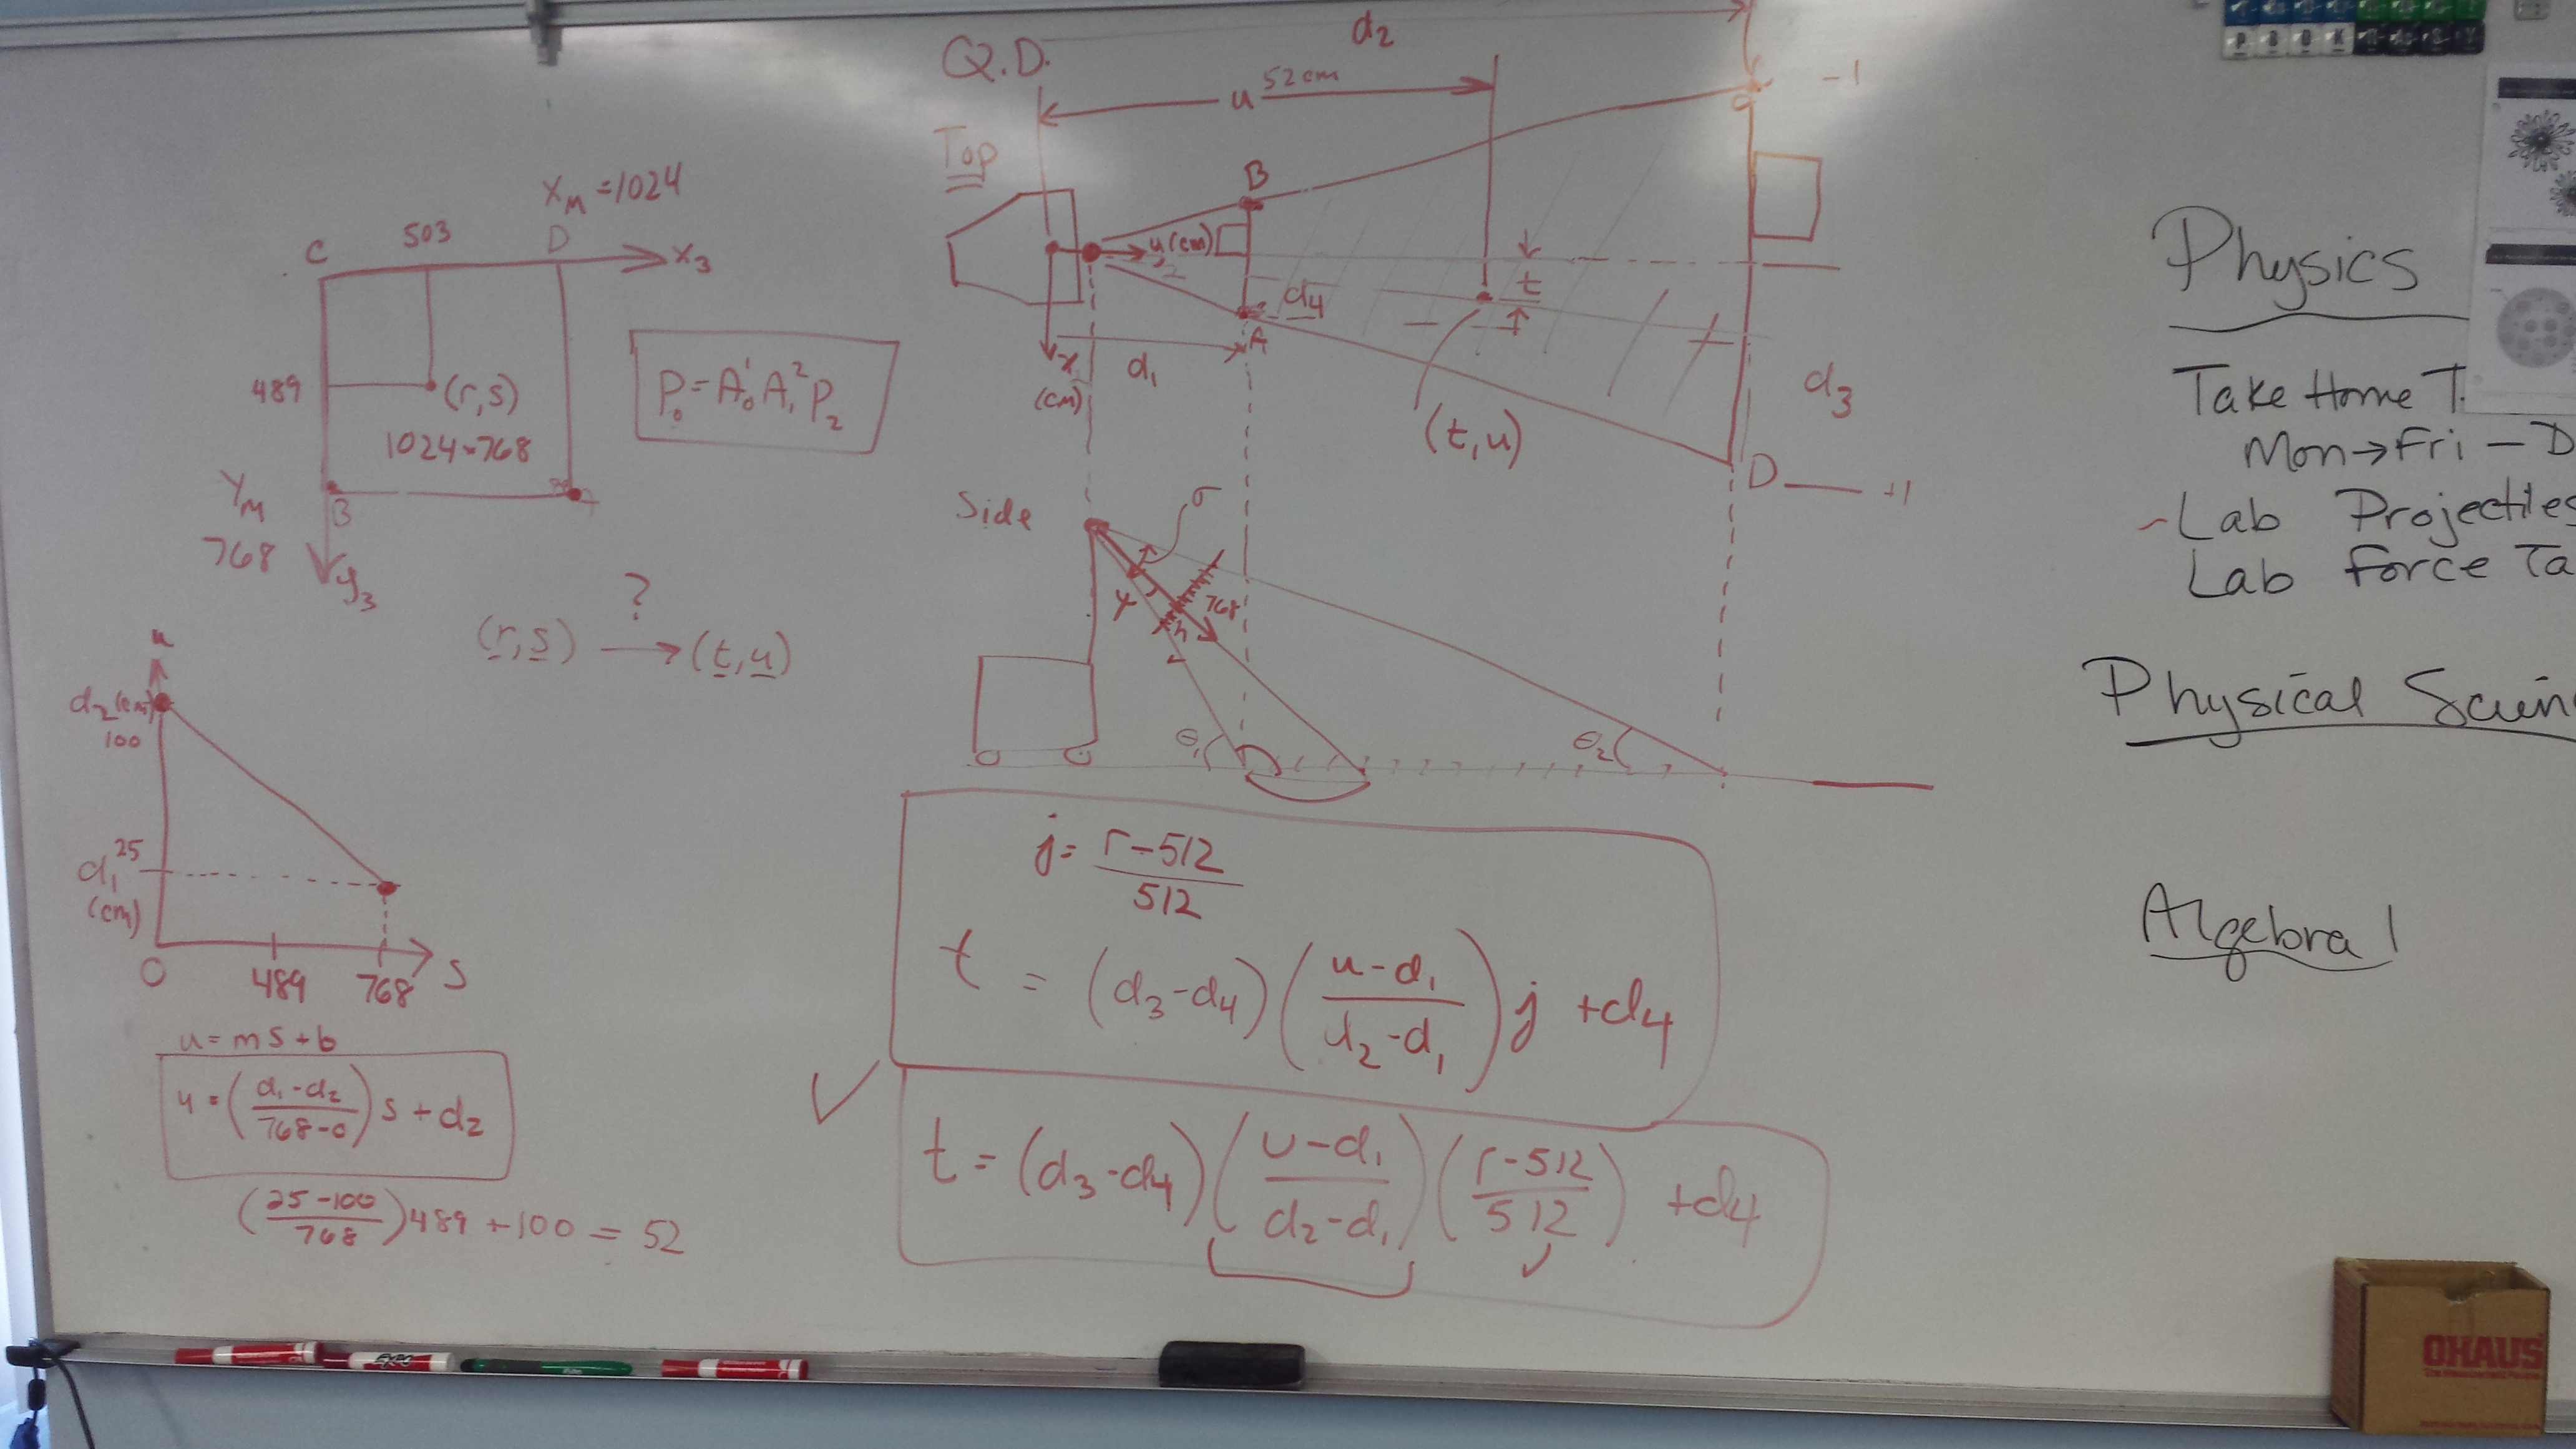 X_M = 1024
C 503 D X₃
489
(r,s)
1024×768
Y_M
768
B
y₃
P₀ = A₀¹ A₁² P₂
(r,s) ? → (t,u)
u
d₂ (cm)
100
d₁ 25
(cm)
0 489 768 S
u = ms + b
u = ((d₁-d₂)/(768-0)) s + d₂
((25-100)/768) 489 + 100 = 52
Q.D.
d₂
u 52cm
-1
Top
B
C
y (cm)
t
d₄
A
x
(cm)
d₁
d₃
(t,u)
D +1
Side
σ
γ
768
h
θ₁ θ₂
j = (r-512)/512
t = (d₃-d₄) ((u-d₁)/(d₂-d₁)) j + d₄
✓
t = (d₃-d₄) ((u-d₁)/(d₂-d₁)) ((r-512)/512) + d₄
Physics
Take Home T.
Mon → Fri — D
- Lab Projectiles
Lab Force Ta
Physical Scien
Algebra 1
EXPO
OHAUS